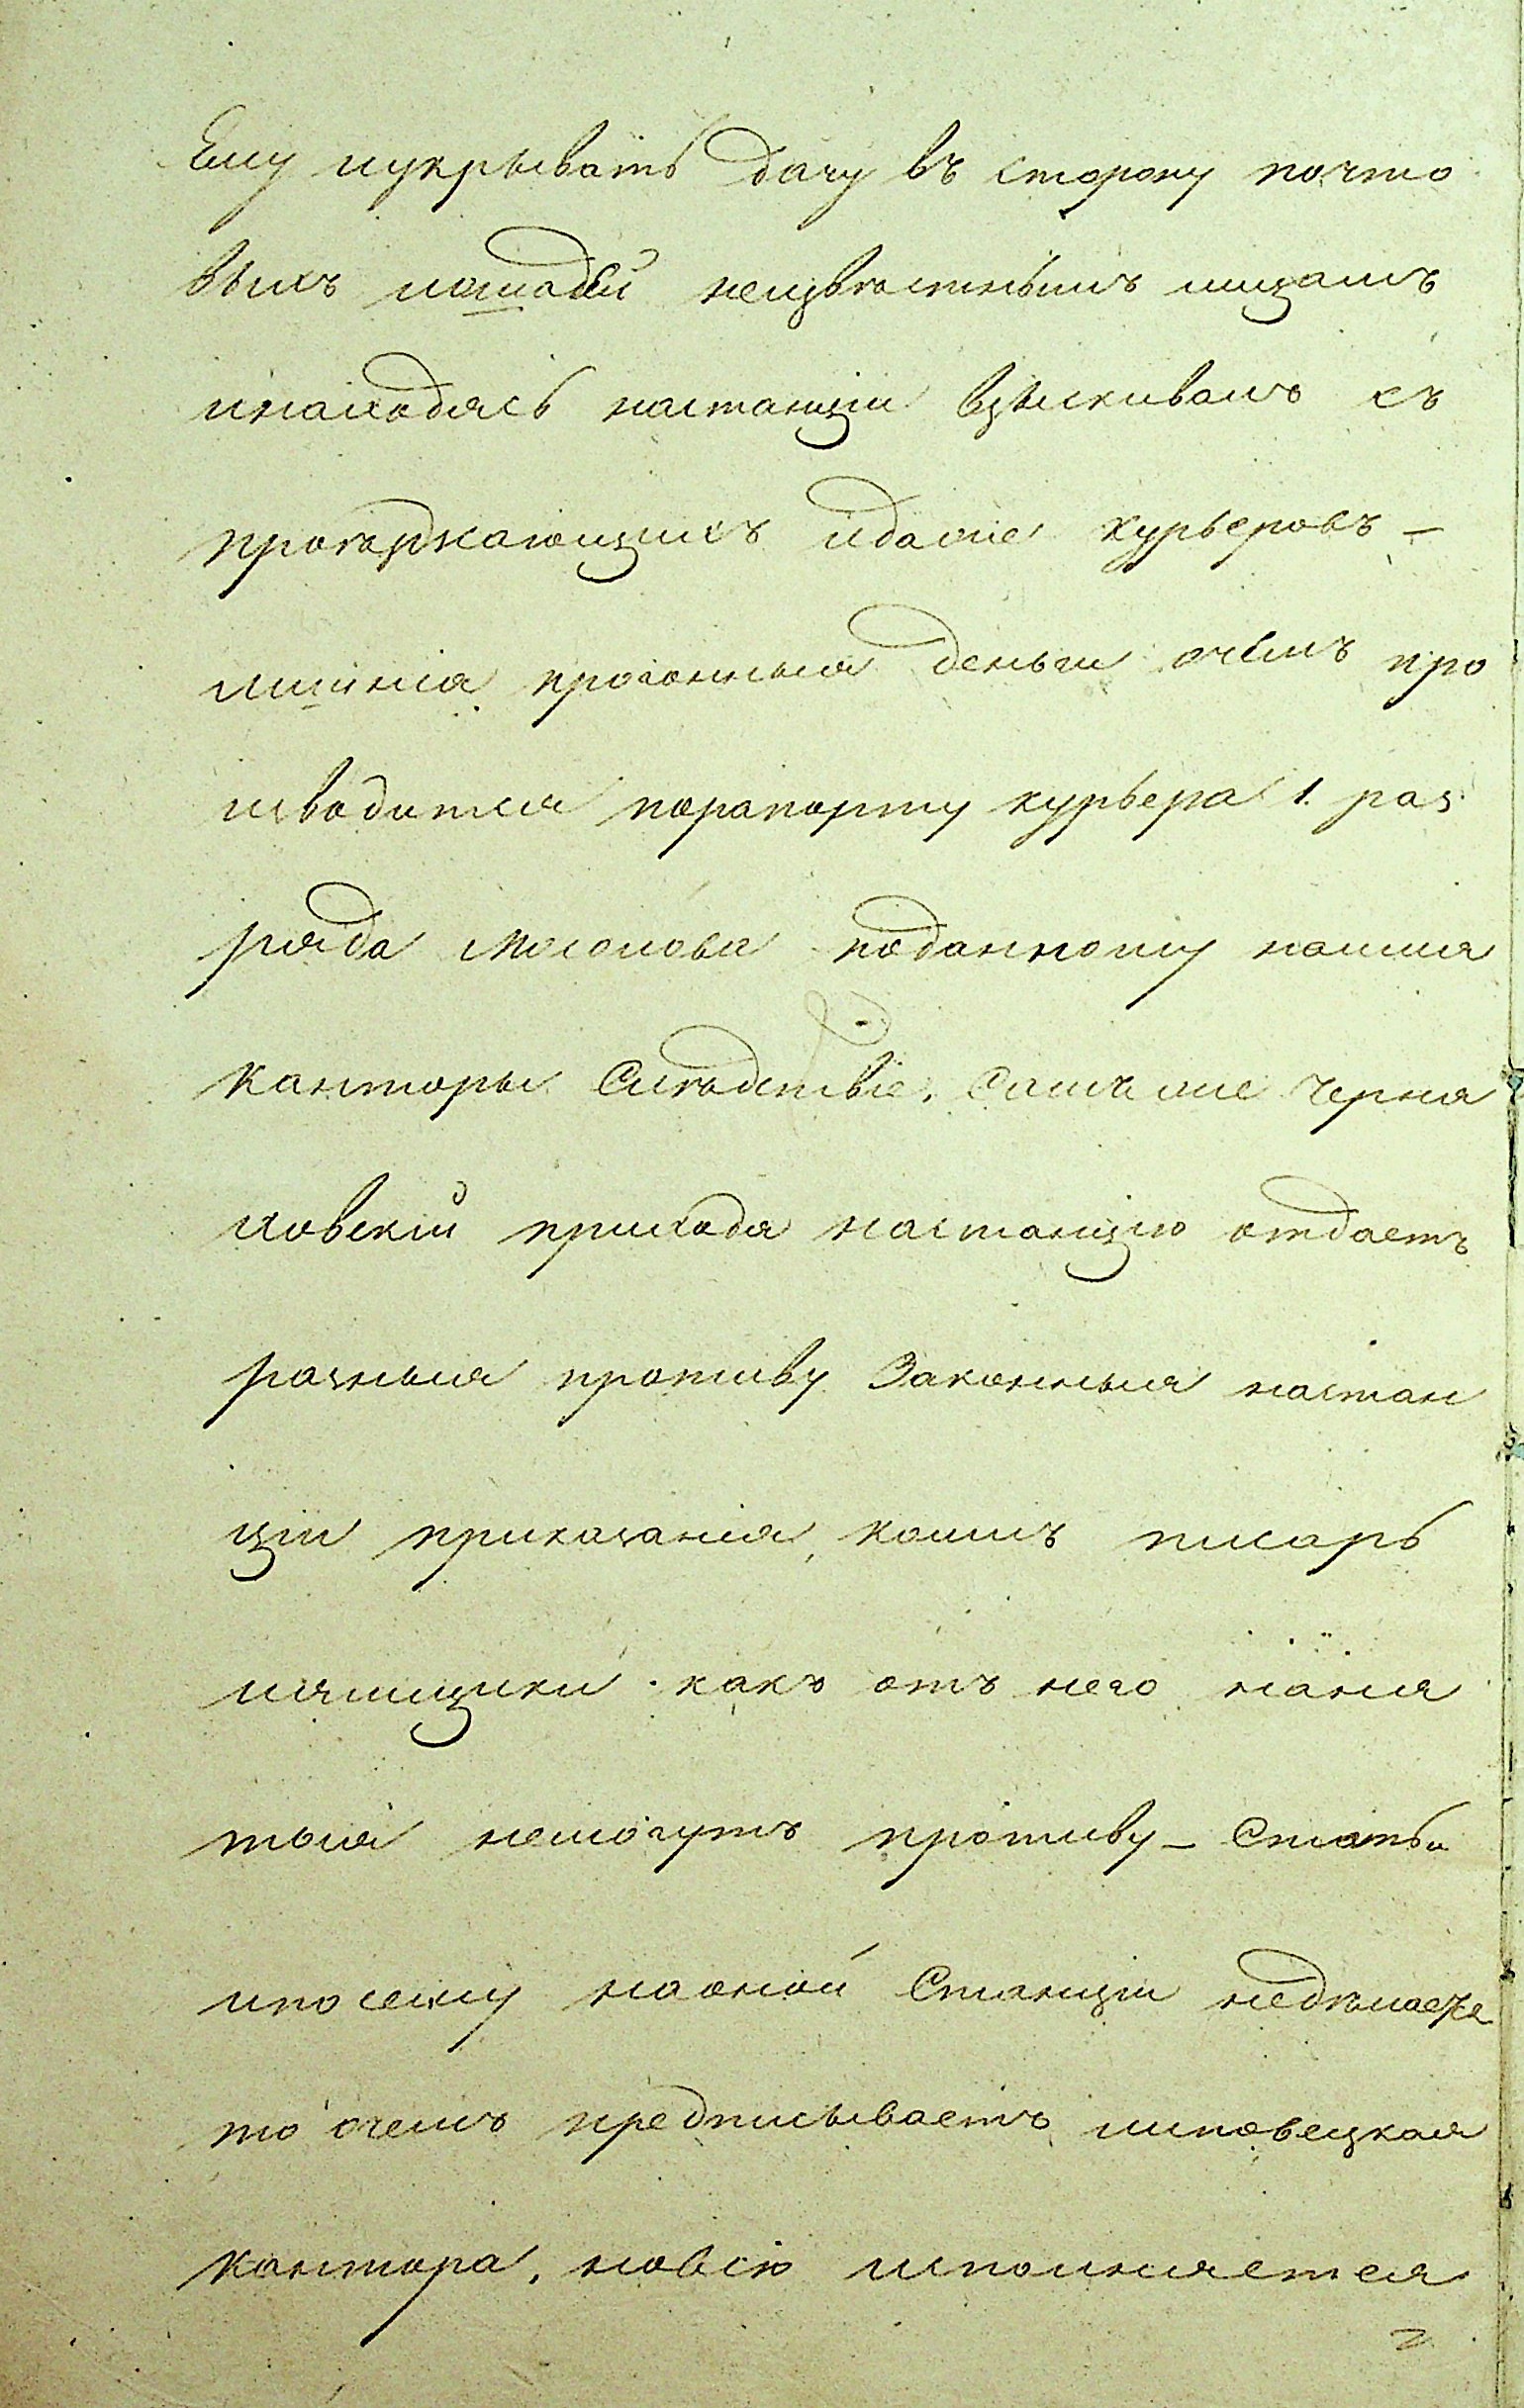 Ему иукрывать дачу въ сторону почто
выхъ лошадей неизвѣстнымъ лицамъ
инаходясь настанціи взыскивалъ съ
проѣзжающихъ идаже курьеровъ –
лишнія прогонныя деньги очемъ про
изводится порапорту курьера 1. раз
ряда поданному намя
канторы Слѣдствіе, Самъ же Черня
ховскій приходя настанцію отдаетъ
разныя противу Законныя настан
ціи приказанія, коимъ писарь
иямщики какъ отъ него наня
тыя немогутъ противу – Стать
ипосему наоной Станціи недѣлается
то очемъ предписываетъ липовецкая
кантора, новсіо исполняется